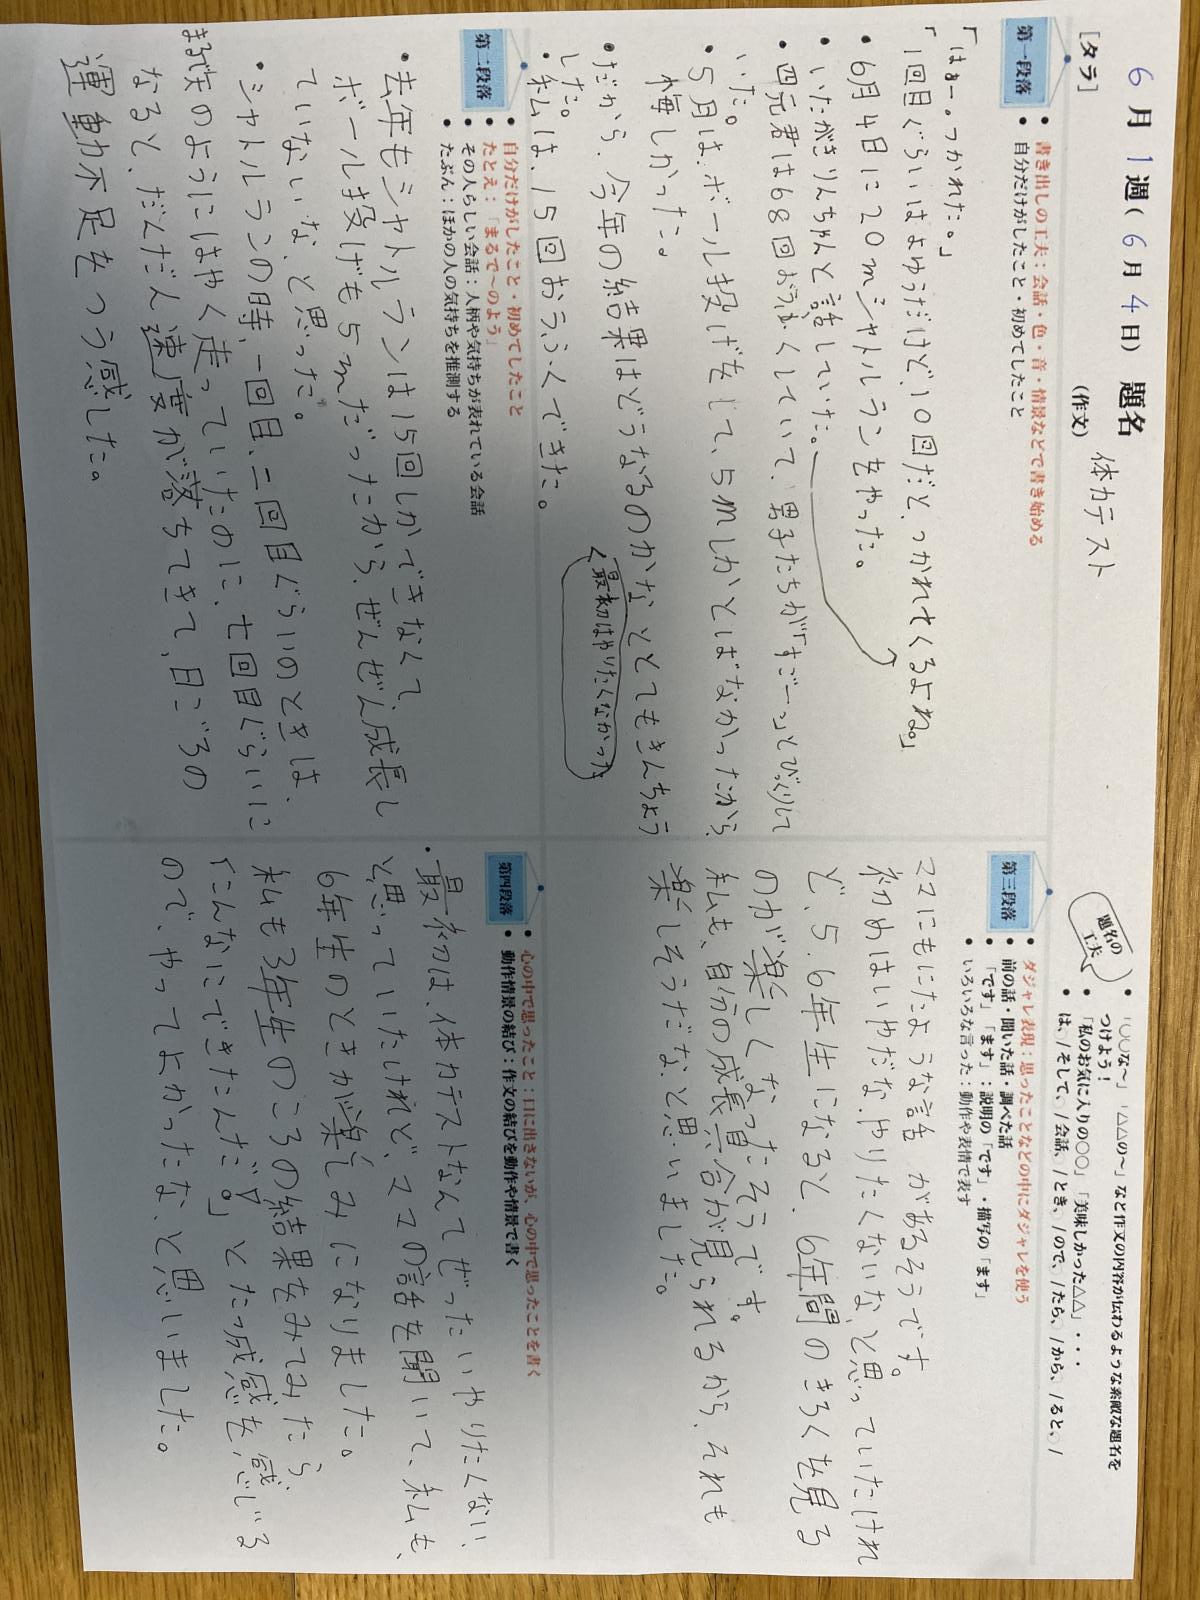 6月1週(6月4日) 題名 体力テスト
[タラ]
(作文)
題名の
工夫
● 「○○な〜」「△△の〜」など作文の内容が伝わるような素敵な題名を
つけよう!
● 「私のお気に入りの○○○」「美味しかった△△」・・・
● は、/そして、/会話、/とき、/ので、/たら、/から、/ると、/
第一段落
● 書き出しの工夫:会話・色・音・情景などで書き始める
● 自分だけがしたこと・初めてしたこと
「はぁー。つかれた。」
「1回目ぐらいはよゆうだけど、10回だと、つかれてくるよね。」
・6月4日に20mシャトルランをやった。
・いたがきりんちゃんと話していた。
・四元君は68回おうふくしていて、男子たちが「すごーっ」とびっくりして
いた。
・5月は、ボール投げをして、5mしかとばなかったから、
悔しかった。
・だから、今年の結果はどうなるのかなととてもきんちょう
した。
・私は、15回おうふくできた。
最初はやりたくなかった
第二段落
● 自分だけがしたこと・初めてしたこと
● たとえ:「まるで〜のよう」
● その人らしい会話:人柄や気持ちが表れている会話
● たぶん:ほかの人の気持ちを推測する
・去年もシャトルランは15回しかできなくて、
ボール投げも5mだったから、ぜんぜん成長し
ていないな、と思った。
・シャトルランの時、一回目、二回目ぐらいのときは、
のようにはやく走っていたのに、七回目ぐらいに
なると、だんだん速度が落ちてきて、日ごろの
運動不足をつう感した。
第三段落
● ダジャレ表現:思ったことなどの中にダジャレを使う
● 前の話・聞いた話・調べた話
● 「です」「ます」:説明の「です」・描写の「ます」
● いろいろな言った:動作や表情で表す
ママにもにたような話があるそうです。
初めはいやだな、やりたくないな、と思っていたけれ
ど、5.6年生になると、6年間のきろくを見る
のが楽しくなったそうです。
私も、自分の成長具合が見られるから、それも
楽しそうだな、と思いました。
第四段落
● 心の中で思ったこと:口に出さないが、心の中で思ったことを書く
● 動作情景の結び:作文の結びを動作や情景で書く
・最初は、体力テストなんてぜったいやりたくない、
と思っていたけれど、ママの話を聞いて、私も、
6年生のときが楽しみになりました。
私も3年生のころの結果をみてみたら、
「こんなにできたんだ。」とたっ成感を感じる
ので、やってよかったな、と思いました。